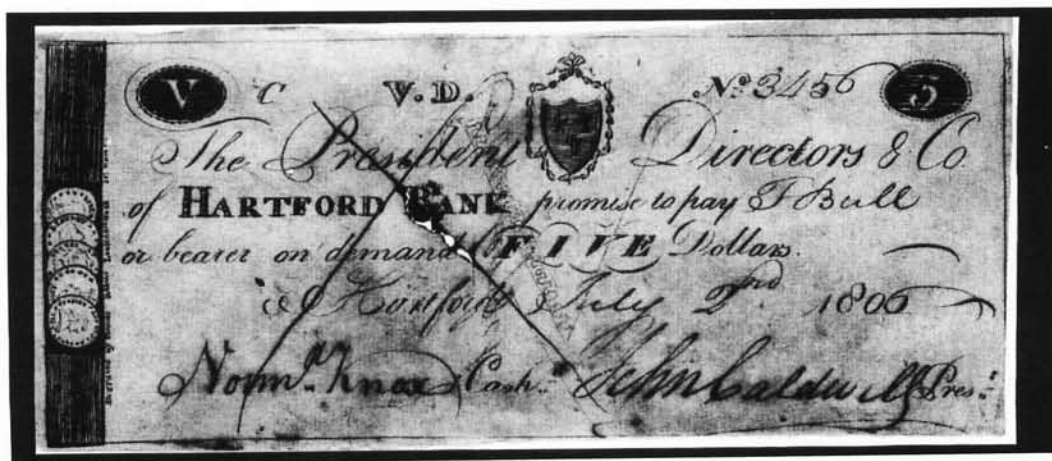 V C V.D. Nº 3456 5
The President Directors & Co
of HARTFORD BANK promise to pay T Bull
or bearer on demand FIVE Dollars.
Hartford July 2nd 1806
Normd. Knox Cash.r John Caldwell Pres.t